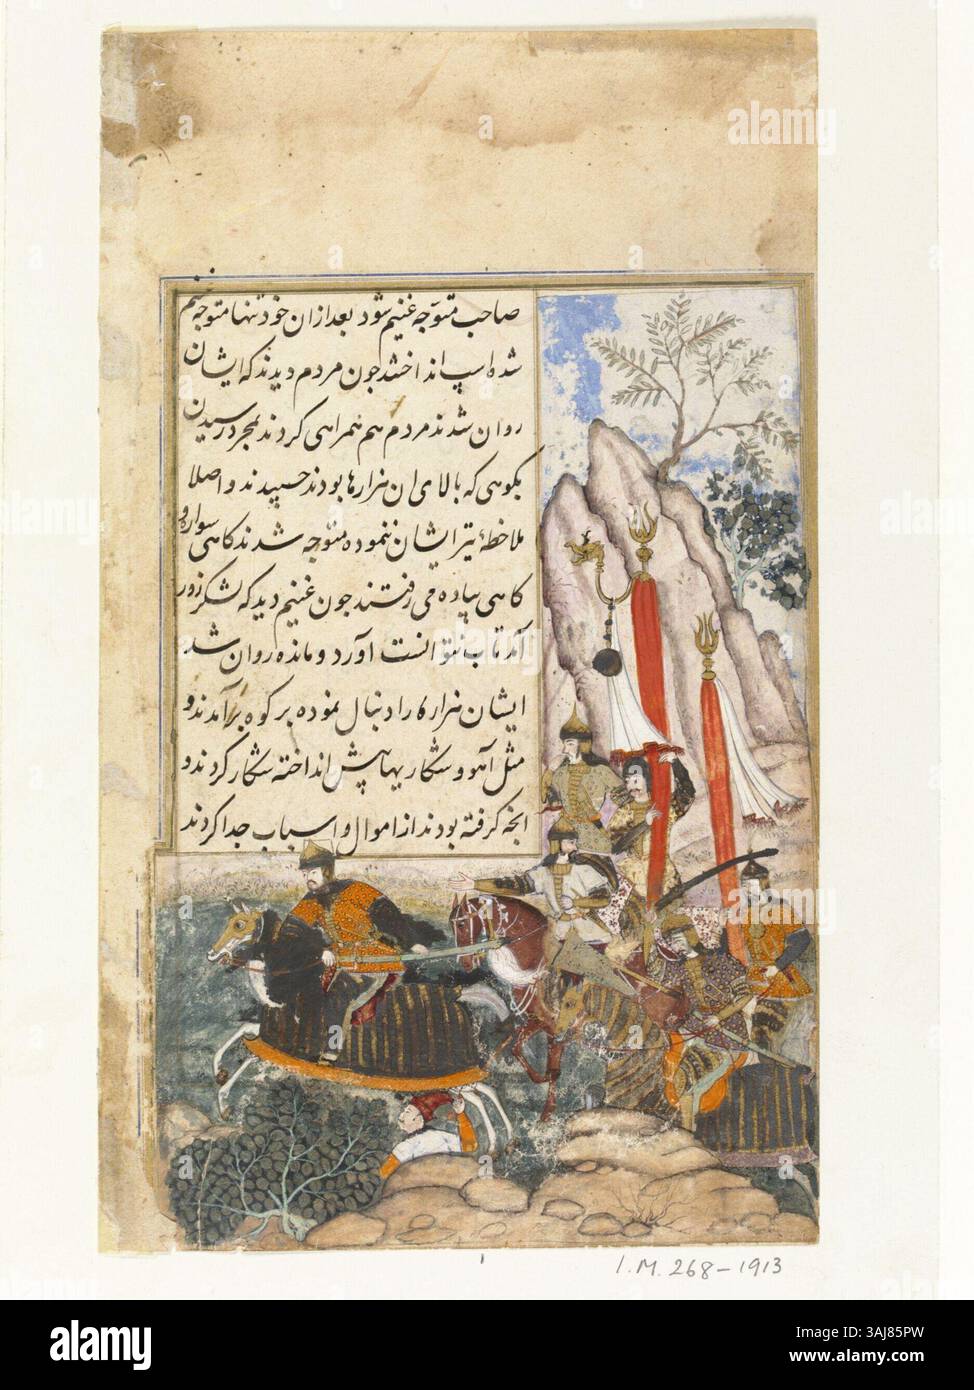 صاحب متوجه غنیم شود بعد ازان خود تنها متوجه غنیم
شده اسپ انداختند چون مردم دیدند که ایشان
روان شدند مردم هم همراهی کردند بمجرد رسیدن
بکوهی که بالای ان هزارها بودند حسپیدند و اصلا
ملاحظهٔ تیر ایشان ننموده متوجه شدند کاهی سواره و
کاهی پیاده می رفتند چون غنیم دید که لشکر زور
آند تاب نتوانست آورد و مانده روان شد
ایشان هزاره را دنبال نموده بر کوه برآمدند و
مثل آهو و شکاریها پیش انداخته شکار کردند و
انچه کرفته بودند از اموال و اسباب جدا کردند
I.M. 268-1913
alamy
Image ID: 3AJ85PW
www.alamy.com